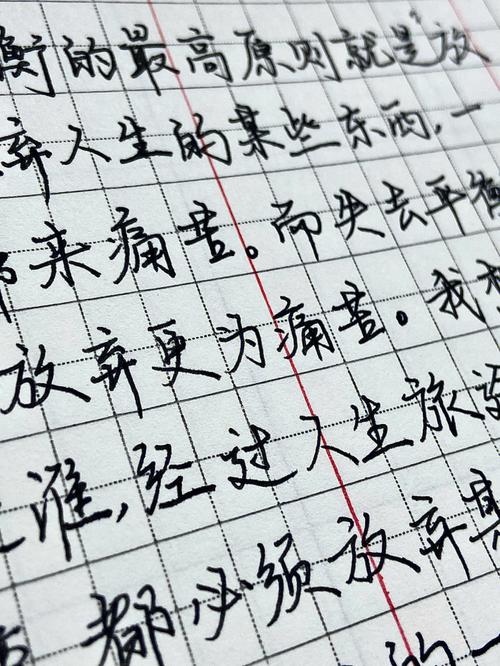 衡的最高原则就是放
弃人生的某些东西,一
来痛苦。而失去平衡
放弃更为痛苦。我
谁,经过人生旅
都必须放弃某
的一